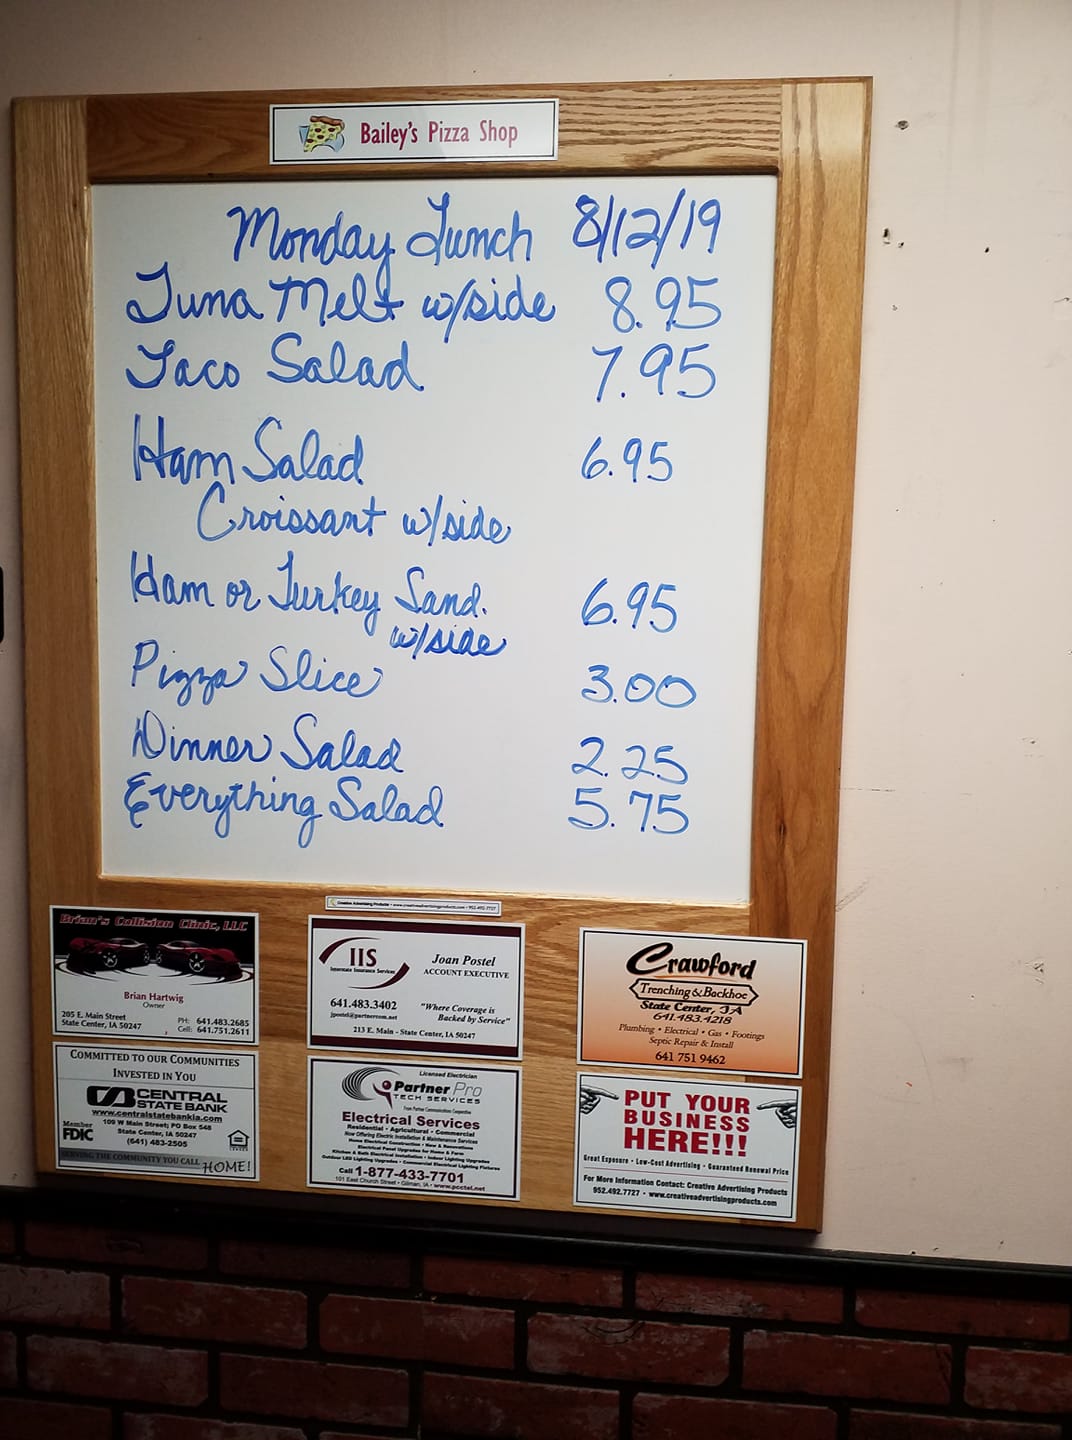 Bailey's Pizza Shop
Monday Lunch 8/12/19
Tuna Melt w/side 8.95
Taco Salad 7.95
Ham Salad 6.95
Croissant w/side
Ham or Turkey Sand. 6.95
w/side
Pizza Slice 3.00
Dinner Salad 2.25
Everything Salad 5.75
Creative Advertising Products • www.creativeadvertisingproducts.com • 952-492-7727
Brian's Collision Clinic, LLC
Brian Hartwig
Owner
205 E. Main Street
State Center, IA 50247
PH: 641.483.2685
Cell: 641.751.2611
IIS
Interstate Insurance Services
Joan Postel
ACCOUNT EXECUTIVE
641.483.3402
jpostel@partnercom.net
"Where Coverage is
Backed by Service"
213 E. Main - State Center, IA 50247
Crawford
Trenching & Backhoe
State Center, IA
641.483.4218
Plumbing • Electrical • Gas • Footings
Septic Repair & Install
641 751 9462
COMMITTED TO OUR COMMUNITIES
INVESTED IN YOU
CENTRAL
STATE BANK
www.centralstatebankia.com
109 W Main Street; PO Box 548
State Center, IA 50247
(641) 483-2505
Member
FDIC
SERVING THE COMMUNITY YOU CALL HOME!
Licensed Electrician
Partner Pro
TECH SERVICES
From Partner Communications Cooperative
Electrical Services
Residential • Agricultural • Commercial
Now Offering Electric Installation & Maintenance Services
Home Electrical Construction • New & Renovations
Electrical Panel Upgrades for Home & Farm
Kitchen & Bath Electrical Installation • Indoor Lighting Upgrades
Outdoor LED Lighting Upgrades • Commercial Electrical Lighting Fixtures
Call 1-877-433-7701
101 East Church Street • Gilman, IA • www.pcctel.net
PUT YOUR
BUSINESS
HERE!!!
Great Exposure • Low-Cost Advertising • Guaranteed Renewal Price
For More Information Contact: Creative Advertising Products
952.492.7727 • www.creativeadvertisingproducts.com